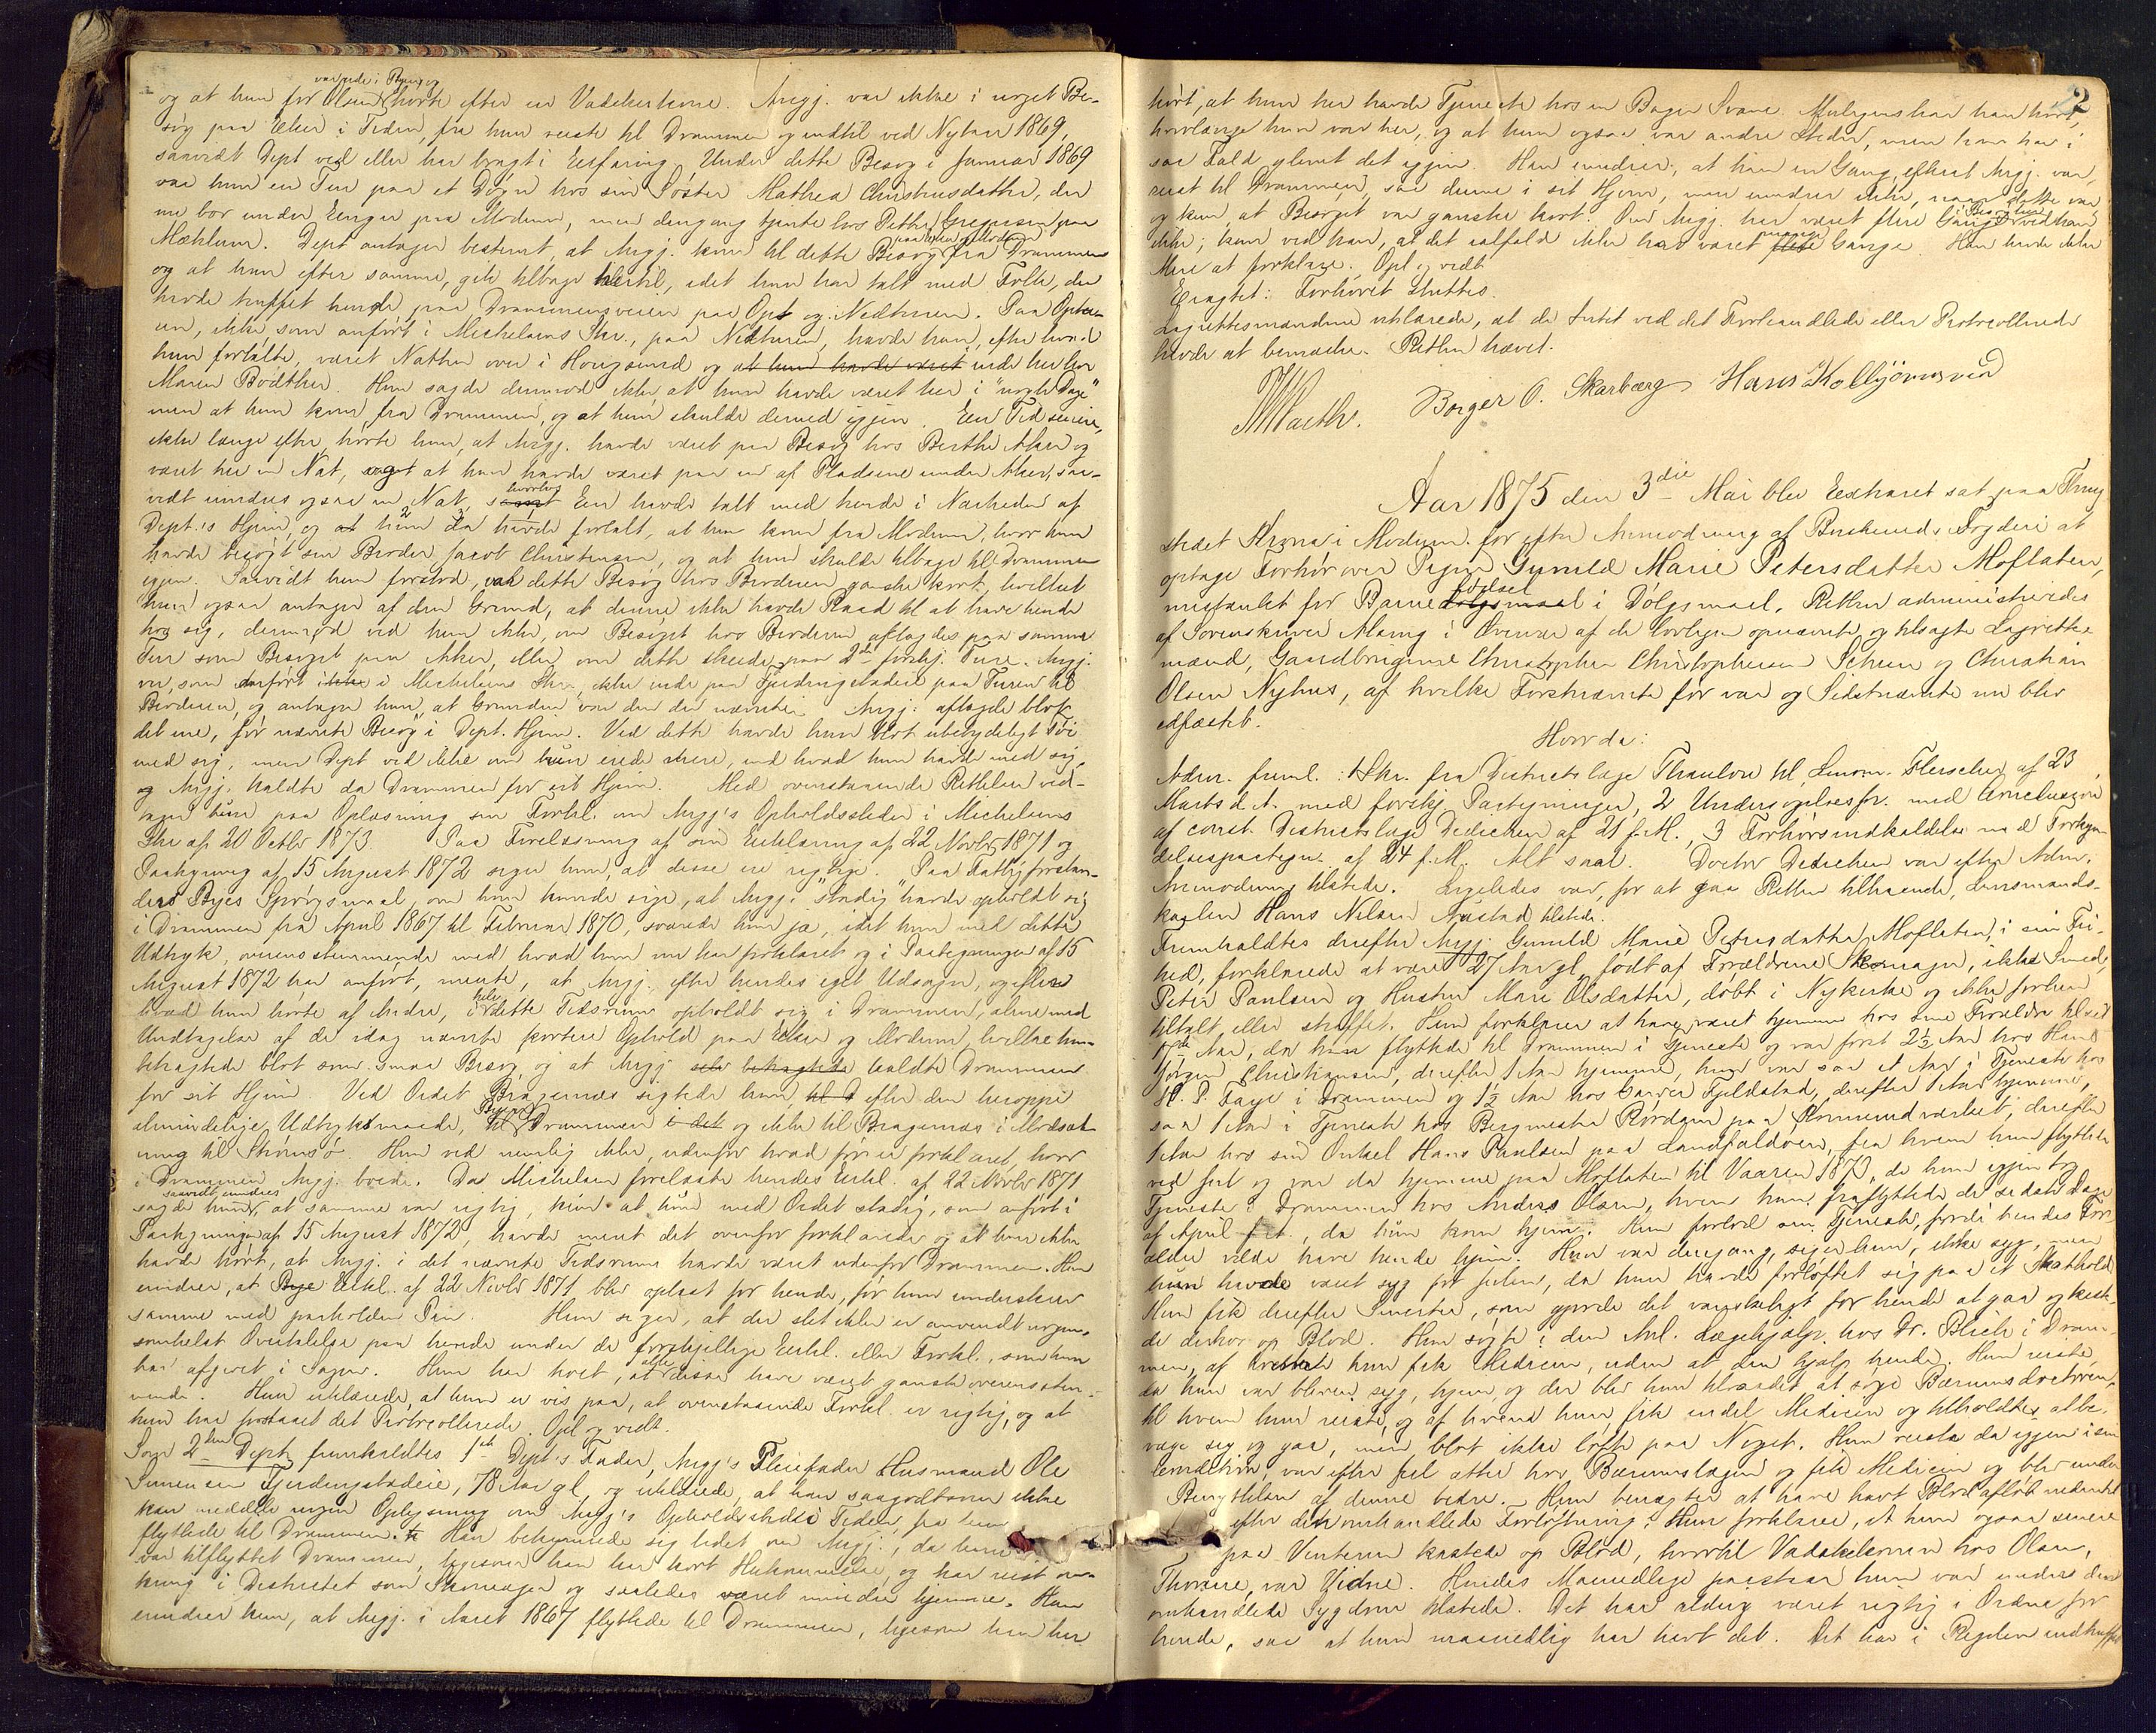 var inde i Byen og
og at hun for Olsen hørte efter en Vadskerkone. Angj. var ikke i noget Be-
søg paa Eker i Tiden, fra hun reiste til Drammen og indtil ved Nytaar 1869,
saavidt Dept ved eller har bragt i Erfaring. Under dette Besøg i Januar 1869
var hun en Tur paa et Døgn hos sin Søster Mathea Christensdatter, der
nu bor under Enger paa Modum, men dengang tjente hos Petter Gregersen paa
Mæhlum. Dept antager bestemt, at Angj. kom til dette Besøg fra Drammen
og at hun efter samme, gik tilbage hertil, idet hun har talt med Folk, der
havde truffet hende paa Drammensveien paa Op og Nedturen. Paa Optu-
ren, ikke som anført i Michelsens Skr., paa Nedturen, havde hun, efter hvad
hun fortalte, været Natten over i Hougsund og at hun havde været inde her hos
Maren Bødtker. Hun sagde derimod ikke, at hun havde været her i "nogle Dage"
men at hun kom fra Drammen, og at hun skulde derned igjen. En Tid senere,
ikke længe efter hørte hun, at Angj. havde været paa Besøg hos Berthe Aker og
været her en Nat, at hun havde været paa en af Pladsene under Aker, saa-
vidt mindes ogsaa en Nat, hvorhos Een havde talt med hende i Nærheden af
Dept.'s Hjem, og hun da havde fortalt, at hun kom fra Modum, hvor hun
havde besøgt sin Broder Jacob Christensen, og at hun skulde tilbage til Drammen
igjen. Saavidt hun forstod, var dette Besøg hos Broderen ganske kort, hvilket
hun ogsaa antager af den Grund, at denne ikke havde Raad til at have hende
hos sig, derimod ved hun ikke, om Besøget hos Broderen aflagdes paa samme
Tur som Besøget paa Aker, eller om dette skede paa 2de forskj. Ture. Angj.
var, som anført i Michelsens Skr., ikke inde paa Fjerdingstadeie paa Turen til
Broderen, og antager hun, at Grunden var den der nævnte. Angj. aflagde blot
det ene, før nævnte Besøg i Dept. Hjem. Ved dette havde hun blot ubetydeligt Tøi
med sig, men Dept ved ikke om hun eiede mere, end hvad hun havde med sig,
og Angj. kaldte da Drammen for sit Hjem. Med ovenstaaende Rettelser ved-
tager hun paa Oplæsning sin Forkl. om Angj's Opholdssteder i Michelsens
Skr af 20 Octbr 1873. Paa Forelæsning af sin Erklæring af 22 Novbr 1871 og
Paategning af 15 August 1872 siger hun, at disse ere rigtige. Paa Fattigforstan-
ders Byes Spørgsmaal, om hun kunde sige, at Angj. "stadig" havde opholdt sig
i Drammen fra April 1867 til Februar 1870, svarede hun ja, idet hun med dette
Udtryk, overensstemmende med hvad hun nu har forklaret og i Paategningen af 15
August 1872 har anført, mente, at Angj. efter hendes eget Udsagn, og efter
hvad hun hørte af Andre, i hele dette Tidsrum opholdt sig i Drammen, alene med
Undtagelse af de idag nævnte kortere Ophold paa Eker og Modum, hvilke hun
betragtede blot som smaa Besøg, og at Angj. selv betragtede kaldte Drammen
for sit Hjem. Ved Ordet Bragernæs sigtede hun til D efter den heroppe
almindelige Udtryksmaade, til Byen Drammen i det og ikke til Bragernæs i Modsæt-
ning til Strømsø. Hun ved nemlig ikke, udenfor hvad før er forklaret, hvor
i Drammen Angj. boede. Da Michelsen forelæste hendes Erkl. af 22 Novbr 1871
saavidt mindes
sagde hun, at samme var rigtig, kun at hun med Ordet stadig, som anført i
Paategningen af 15 August 1872, havde ment det ovenfor forklarede og at hun ikke
havde hørt, at Angj. i det nævnte Tidsrum havde været udenfor Drammen. Hun
erindrer, at Erkl. af 22 Novbr 1871 blev oplæst for hende, før hun underskrev
samme med paaholden Pen. Hun siger, at der slet ikke er anvendt nogen-
somhelst Overtalelse paa hende under de forskjellige Erkl. eller Forkl., som hun
har afgivet i Sagen. Hun har troet, at alle disse have været ganske overensstem-
mende. Hun erklærede, at hun er vis paa, at ovenstaaende Forkl. er rigtig, og at
hun har forstaaet det Protocollerede. Opl og vedt.
Som 2den Dept fremkaldtes 1ste Dept's Fader, Angj's Pleiefader Husmand Ole
Simensen Fjerdingstadeie, 78 Aar gl, og erklærede, at han saagodtsom ikke
kan meddele nogen Oplysning om Angj's Opholdssteder i Tiden, fra hun
flyttede til Drammen. Han bekymrede sig lidet om Angj., da hun
var tilflyttet Drammen, ligesom han har hørt Hukommelse, og har reist om-
kring i Districtet som Skomager og saaledes været mindre hjemme. Han
erindrer kun, at Angj. i Aaret 1867 flyttede til Drammen, ligesom han har
2
hørt, at hun her havde Tjeneste hos en Bager Svane. Muligens har han hørt,
hvorlænge hun var her, og at hun ogsaa var andre Steder, men han har i
saa Fald glemt det igjen. Han erindrer, at han en Gang, efterat Angj. var
reist til Drammen, saa denne i sit Hjem, men erindrer ikke, naar dette var
og kun, at Besøget var ganske kort. Om Angj. har været flere Gange i Besøg her ved han
ikke; kun ved han, at det ialfald ikke har været mange Gange. Han havde ikke
Mere at forklare. Opl og vedt.
Eragtet: Forhøret sluttes.
Lagrettesmændene erklærede, at de Intet ved det Forhandlede eller Protocollerede
havde at bemærke. Retten hævet.
Borger O. Skarberg Hans Kolbjørnsrud
Aar 1875 den 3die Mai blev Extraret sat paa Thing
stedet Krona i Modum for efter Anmodning af Buskeruds Fogderi at
optage Forhør over Pigen Gunild Marie Petersdatter Moflaten,
mistænkt for Barnefødsel i Dølgsmaal. Retten administreredes
af Sorenskriver Maing i Overvær af de lovligen opnævnte og tilsagte Lagrettes-
mænd, Gaardbrugerne Christopher Christophersen Scheen og Christian
Olsen Nyhus, af hvilke Førstnævnte før var og Sidstnævnte nu blev
edfæstet.
Hvorda:
Adm. freml.: 1 Skr. fra Districtslæge Thaulow til Lensm. Fleischer af 23
Marts d. A. med forskj Paategninger, 2 Undersøgelsesfor. med Conclusion
af const. Districtslæge Dedichen af 21 f. M., 3 Forhørsindkaldelse med Forkyn-
delsespaategn. af 24 f. M. Alt saal. Doctor Dedichen var efter Adm.
Anmodning tilstede. Ligeledes var, for at gaa Retten tilhaande, Lensmands-
karlen Hans Nilsen Aastad tilstede.
Fremkaldtes derefter Angj. Gunild Marie Petersdatter Moflaten, i sin Fri-
hed, forklarede at være 27 Aar gl, født af Forældrene Skomager, ikke Smed,
Peter Paulsen og Hustru Mari Olsdatter, døbt i Nykirke og ikke forhen
tiltalt eller straffet. Hun forklarer at have været hjemme hos sine Forældre til sit
17de Aar, da hun flyttede til Drammen i Tjeneste og var først 2½ Aar hos Hans
Jørgen Christiansen, derefter 1 Aar hjemme, hun var saa et Aar i Tjeneste hos
H. P. Faye i Drammen og 1½ Aar hos Garver Fjeldstad, derefter 1 Aar hjemme,
saa 1 Aar i Tjeneste hos Bergmester Rørdam paa Fossumværket, derefter
1 Aar hos sin Onkel Hans Paulsen paa Landfaldøen, fra hvem hun flyttede
ved Juel og var da hjemme paa Moflaten til Vaaren 1873, da hun igjen tog
Tjeneste i Drammen hos Anders Olsen, hvem hun fraflyttede de sidste Dage
af April f. A., da hun kom hjem. Hun forlod sin Tjeneste, fordi hendes For-
ældre vilde have hende hjem. Hun var dengang, siger hun, ikke syg, men
hun havde været syg før Julen, da hun havde forløftet sig paa et
Hun fik derefter Smerter, som gjorde det vanskeligt for hende at gaa og kaste-
de derhos op Blod. Hun søgte i den Anl. Lægehjælp hos Dr. Blich i Dram-
men, af hvem hun fik Medicin, uden at den hjalp hende. Hun reiste,
da hun var bleven syg, hjem, og der blev hun tilraadet at søge Bærumsdoctoren,
til hvem hun reiste, og af hvem hun fik endel Medicin og tilholdtes at be-
væge sig og gaa, men blot ikke løfte paa Noget. Hun reiste da igjen i sin
Condition, var efter Jul atter hos Bærumslægen og fik Medicin og blev under
Benyttelsen af denne bedre. Hun benægter at have havt Blodafløb nedentil
efter den omhandlede Forløftning. Hun forklarer, at hun ogsaa senere
paa Vinteren kastede op Blod, hvortil Vadskekonen hos Olsen,
Thorine, var Vidne. Hendes Maanedlige paastaar hun var under den
omhandlede Sygdom tilstede. Det har aldrig været rigtig i Orden for
hende, saa at hun maanedlig har havt det. Det har i Regelen indtruffet